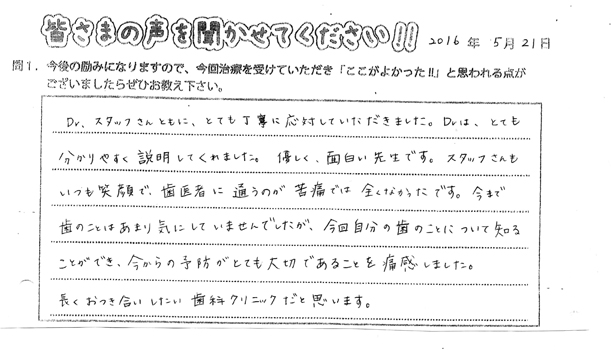 皆さまの声を聞かせてください!!
2016年 5月21日
問1. 今後の励みになりますので、今回治療を受けていただき「ここがよかった!!」と思われる点が
ございましたらぜひお教え下さい。
Dr、スタッフさんともに、とても丁寧に応対していただきました。Drは、とても
分かりやすく説明してくれました。優しく、面白い先生です。スタッフさんも
いつも笑顔で、歯医者に通うのが苦痛では全くなかったです。今まで
歯のことはあまり気にしていませんでしたが、今回自分の歯のことについて知る
ことができ、今からの予防がとても大切であることを痛感しました。
長くおつき合いしたい歯科クリニックだと思います。